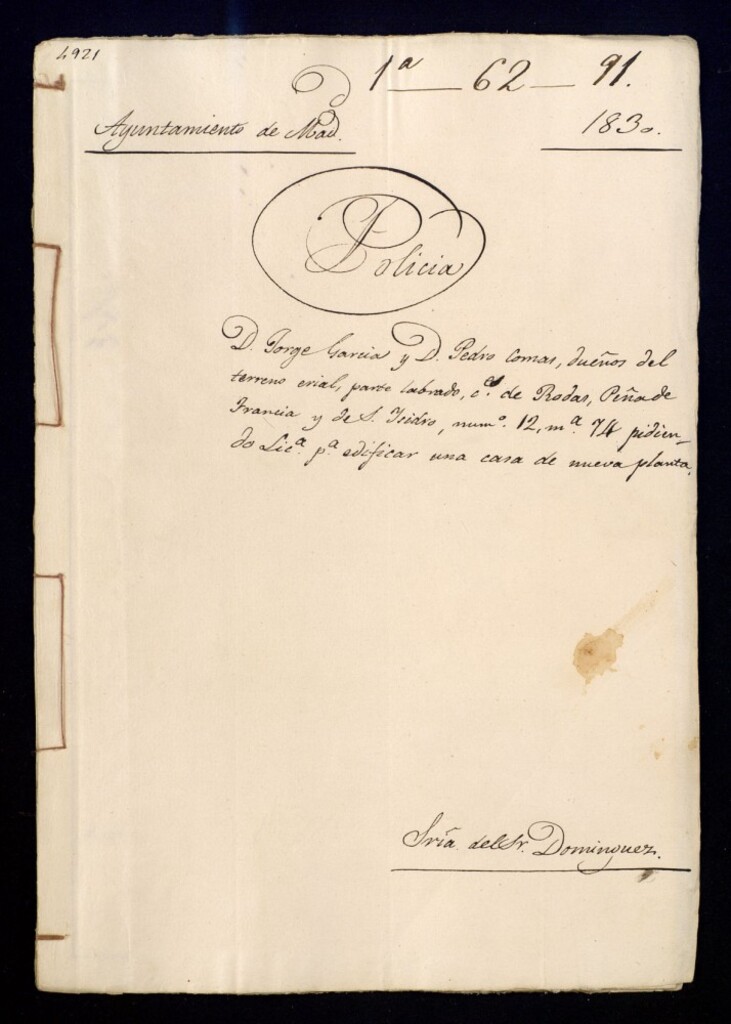 4921
1ª — 62 — 91.
Ayuntamiento de Mad.
1830.
Policia
D. Jorge Garcia y D. Pedro Comas, dueños del
terreno erial, parte labrado, c.s de Rodas, Peña de
Francia y de S. Isidro, num.º 12, m.ª 74 pidien-
do Lic.ª p.ª edificar una casa de nueva planta.
Sría. del Sr. Dominguez.